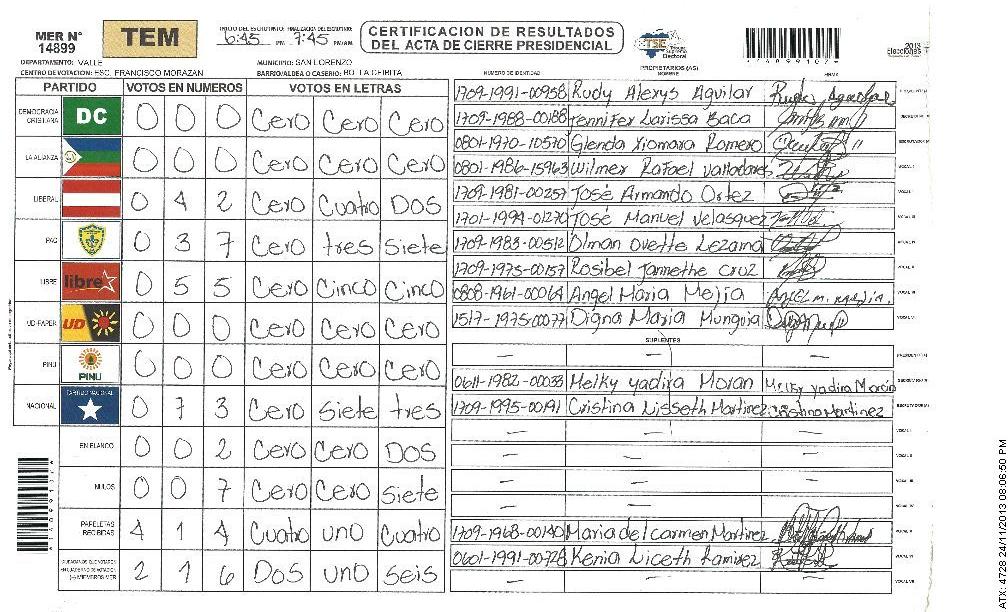 MER N° 14899
TEM
INICIO DEL ESCRUTINIO: 6:45 PM FINALIZACION DEL ESCRUTINIO: 7:45 PM/AM
CERTIFICACION DE RESULTADOS
DEL ACTA DE CIERRE PRESIDENCIAL
TSE Tribunal Supremo Electoral
2013
elecciones
DEPARTAMENTO: VALLE MUNICIPIO: SAN LORENZO
CENTRO DE VOTACION: ESC. FRANCISCO MORAZAN BARRIO/ALDEA O CASERIO: BO. LA CEIBITA
NUMERO DE IDENTIDAD PROPIETARIOS (AS) NOMBRE FIRMA
PARTIDO VOTOS EN NUMEROS VOTOS EN LETRAS
DEMOCRACIA CRISTIANA DC 0 0 0 Cero Cero Cero
LA ALIANZA 0 0 0 Cero Cero Cero
LIBERAL 0 4 2 Cero Cuatro Dos
PAC 0 3 7 Cero tres Siete
LIBRE libre 0 5 5 Cero Cinco Cinco
UD-FAPER UD 0 0 0 Cero Cero Cero
PINU PINU 0 0 0 Cero Cero Cero
NACIONAL PARTIDO NACIONAL 0 7 3 Cero Siete tres
EN BLANCO 0 0 2 Cero Cero Dos
NULOS 0 0 7 Cero Cero Siete
PAPELETAS RECIBIDAS 4 1 4 Cuatro uno Cuatro
CIUDADANOS QUE VOTARON EN CUADERNO DE VOTACION (+) MIEMBROS MER 2 1 6 Dos uno seis
1709-1991-00958 Rudy Alexys Aguilar
1709-1988-00188 Jennifer Larissa Baca
0801-1970-10570 Glenda Xiomara Romero
0801-1986-15963 Wilmer Rafael Valladares
1709-1981-00257 José Armando Ortez
1701-1994-01270 José Manuel Velasquez
1709-1983-00512 Olman Ovette Lezama
1709-1975-00157 Rosibel Jannethe Cruz
0808-1961-00064 Angel Maria Mejia
1517-1975-00077 Digna Maria Munguia
SUPLENTES
— — —
0611-1982-00038 Melky yadira Moran Melky yadira Moran
1709-1995-00191 Cristina Lisseth Martinez Cristina Martinez
— — —
— — —
— — —
— — —
1709-1968-00140 Maria del carmen Martinez
0601-1991-00728 Kenia Liceth Ramirez
— — —
ATX: 4728 24/11/2013 08:06:50 PM